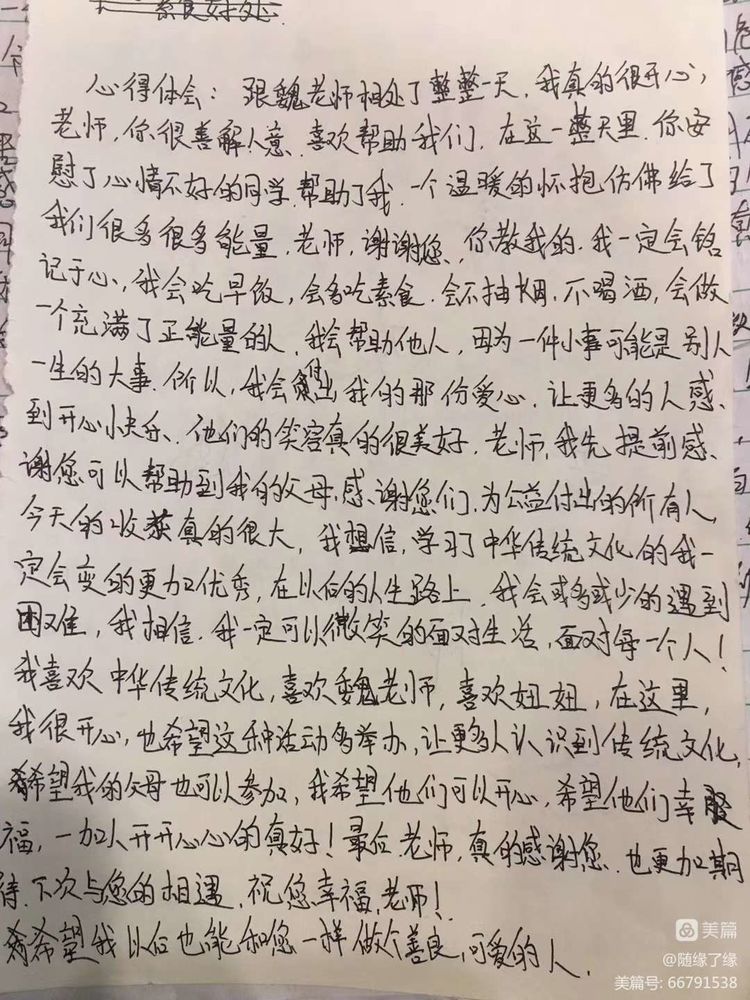 素食好处
心得体会：跟魏老师相处了整整一天，我真的很开心，
老师，你很善解人意、喜欢帮助我们，在这一整天里，你安
慰了心情不好的同学，帮助了我，一个温暖的怀抱仿佛给了
我们很多很多能量，老师，谢谢您，你教我的，我一定会铭
记于心，我会吃早饭，会多吃素食，会不抽烟，不喝酒，会做
一个充满了正能量的人，我会帮助他人，因为一件小事可能是别人
一生的大事，所以，我会付出我的那份爱心，让更多的人感
到开心快乐、他们的笑容真的很美好，老师，我先提前感
谢您可以帮助到我的父母，感谢您们，为公益付出的所有人，
今天的收获真的很大，我想信，学习了中华传统文化的我一
定会变的更加优秀，在以后的人生路上，我会或多或少的遇到
困难，我相信，我一定可以微笑的面对生活，面对每一个人！
我喜欢中华传统文化，喜欢魏老师，喜欢妞妞，在这里，
我很开心，也希望这种活动多举办，让更多人认识到传统文化，
希望我的父母也可以参加，我希望他们可以开心，希望他们幸
福，一加人开开心心的真好！最后，老师，真的感谢您，也更加期
待下次与您的相遇，祝您幸福，老师！
希望我以后也能和您一样做个善良，可爱的人，
美篇
@随缘了缘
美篇号: 66791538